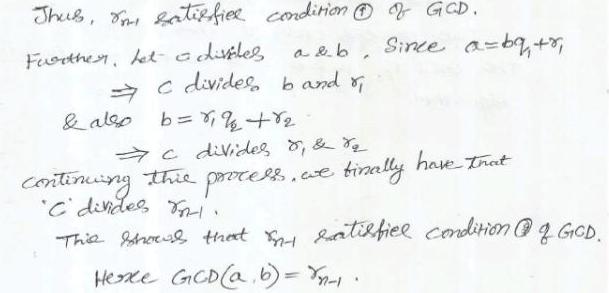 Thus, rₙ₋₁ satisfies condition ① of GCD.
Further, Let c divides a & b, Since a=bq₁+r₁
⇒ c divides b and r₁
& also b=r₁q₂+r₂
⇒ c divides r₁ & r₂
continuing this process, we finally have that
'c' divides rₙ₋₁.
This shows that rₙ₋₁ satisfies condition ② of GCD.
Hence GCD(a,b)=rₙ₋₁.